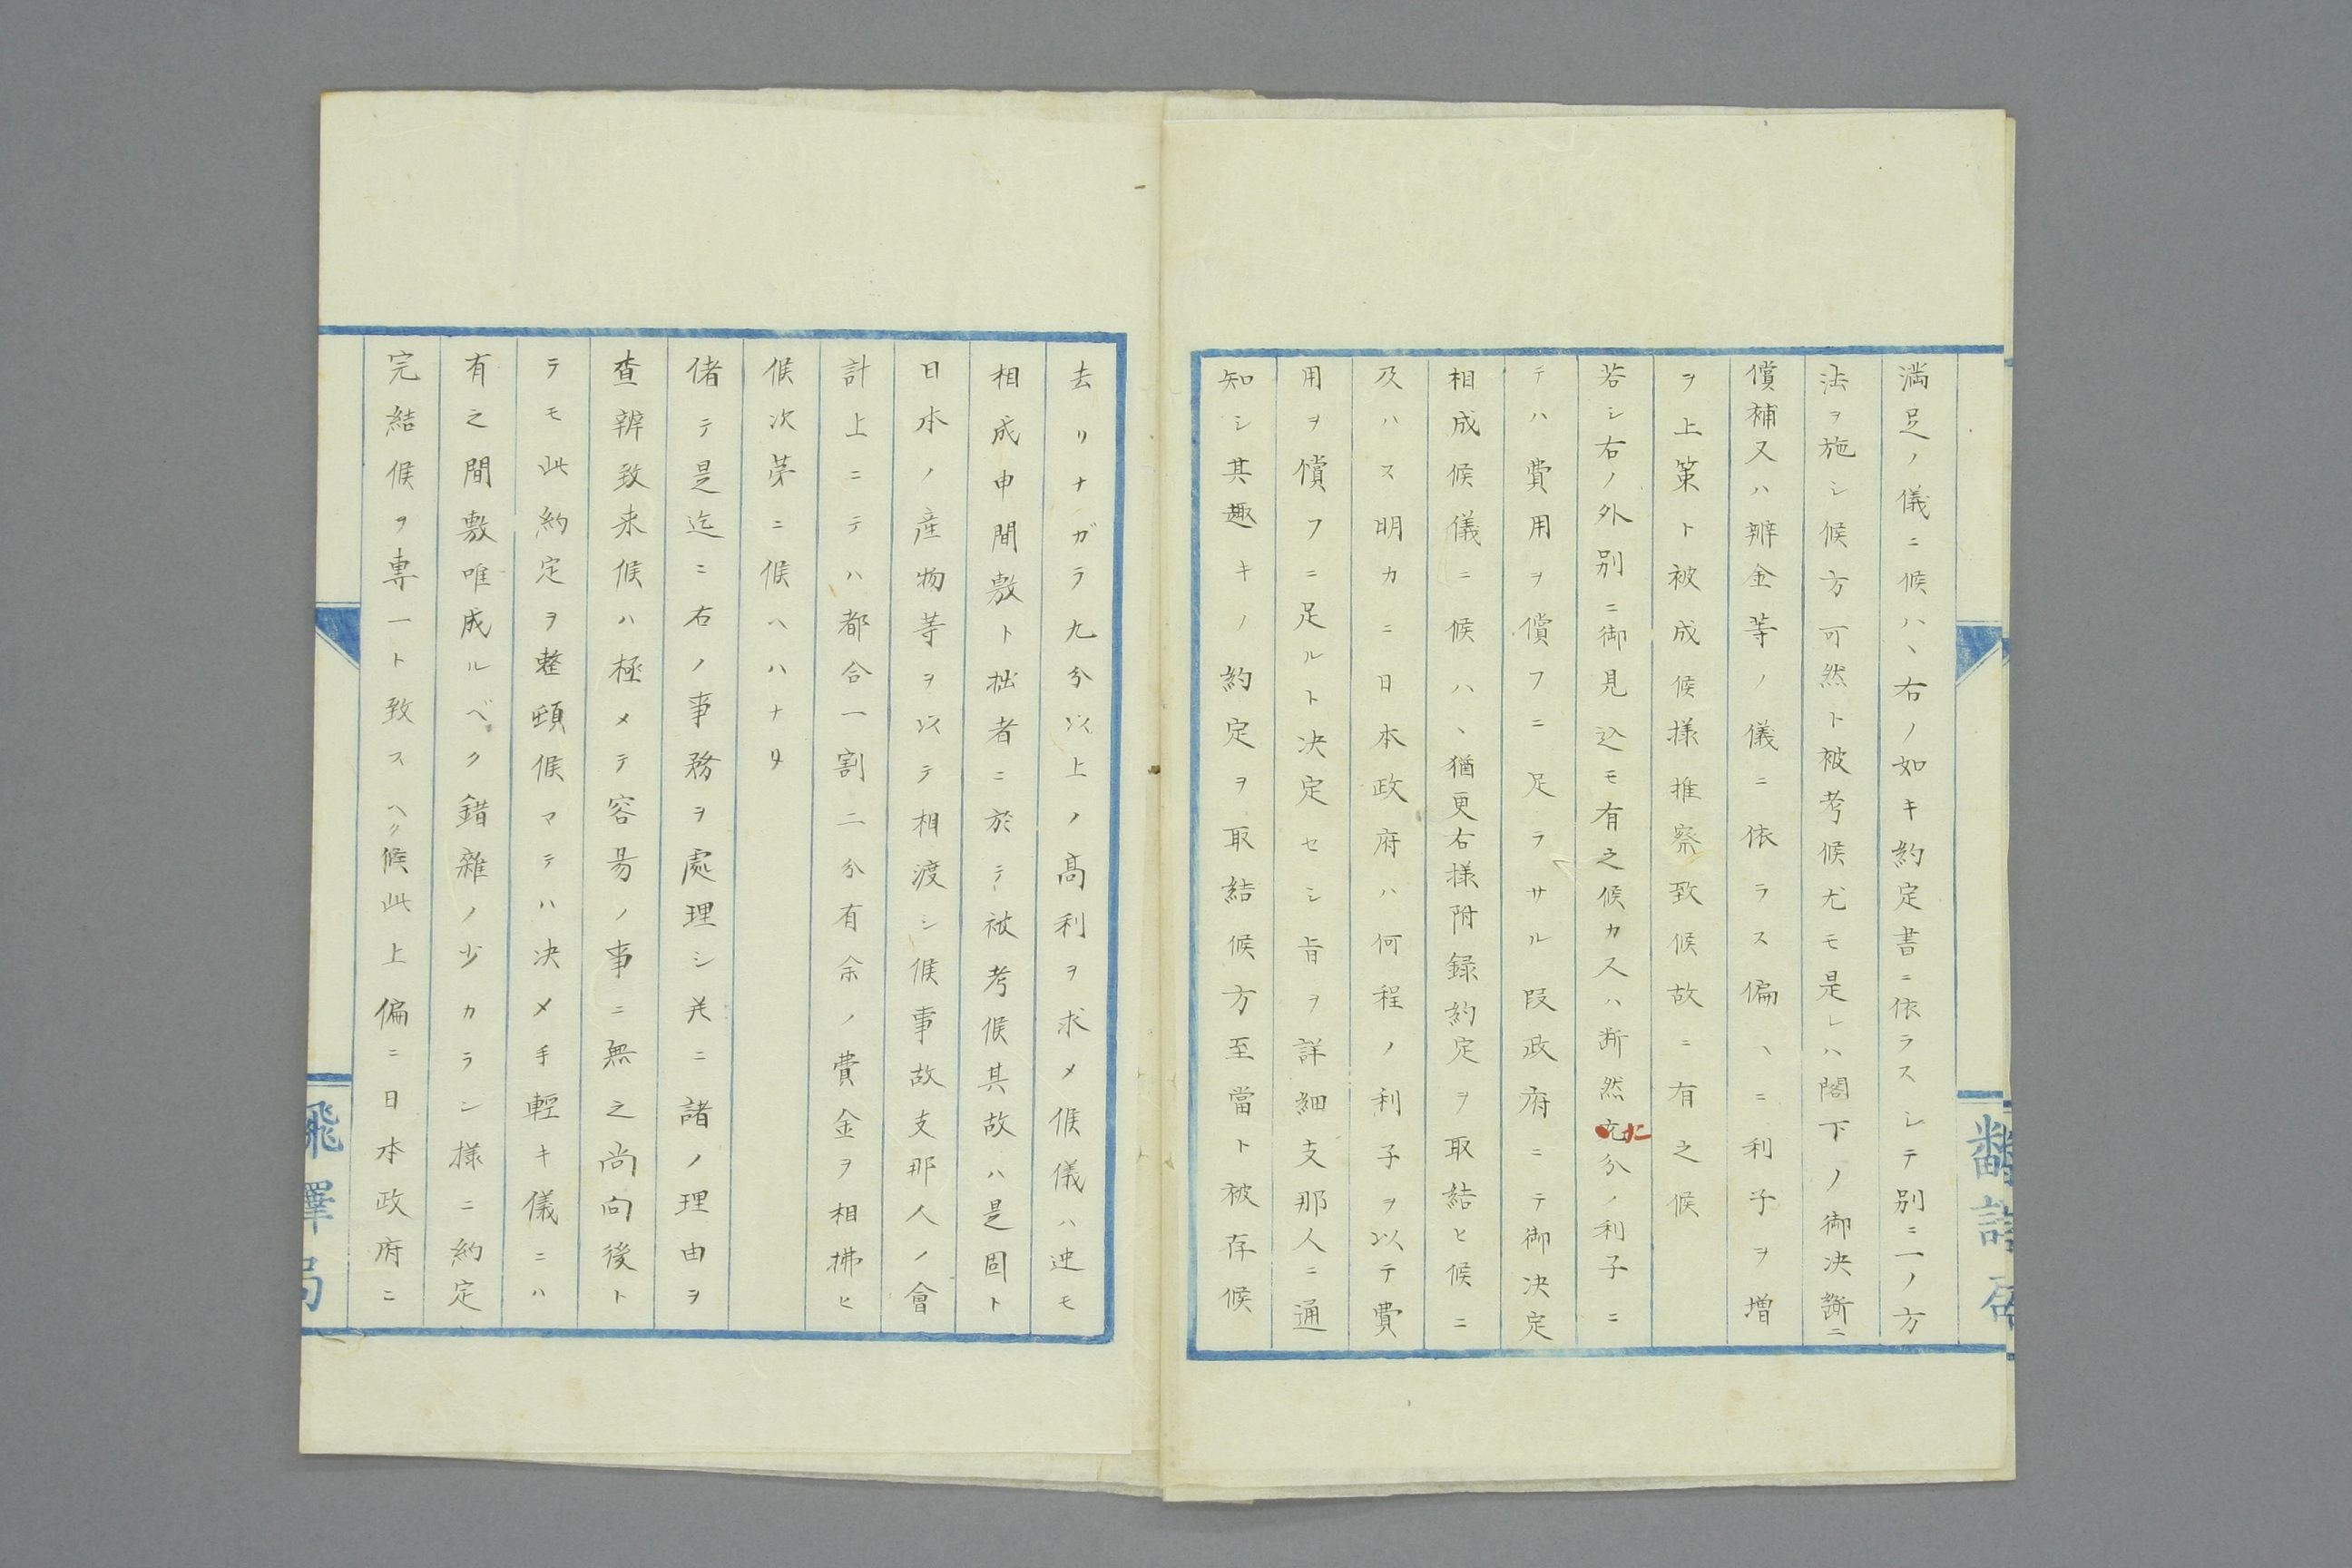 満足ノ儀ニ候ハヽ右ノ如キ約定書ニ依ラスシテ別ニ一ノ方
法ヲ施シ候方可然ト被考候尤モ是レハ閣下ノ御決斷ニ
償補又ハ辨金等ノ儀ニ依ラス偏ヽニ利子ヲ増
ヲ上策ト被成候様推察致候故ニ有之候
若シ右ノ外別ニ御見込モ有之候カ又ハ断然充分ノ利子ニ
テハ費用ヲ償フニ足ラサル段政府ニテ御決定
相成候儀ニ候ハヽ猶更右様附録約定ヲ取結ヒ候ニ
及ハス明カニ日本政府ハ何程ノ利子ヲ以テ費
用ヲ償フニ足ルト决定セシ旨ヲ詳細支那人ニ通
知シ其趣キノ約定ヲ取結候方至當ト被存候
去リナガラ九分以上ノ高利ヲ求メ候儀ハ迚モ
相成申間敷ト拙者ニ於テ被考候其故ハ是固ト
日本ノ産物等ヲ以テ相渡シ候事故支那人ノ會
計上ニテハ都合一割二分有余ノ費金ヲ相拂ヒ
候次第ニ候ヘハナリ
偖テ是迄ニ右ノ事務ヲ處理シ并ニ諸ノ理由ヲ
査辨致来候ハ極メテ容昜ノ事ニ無之尚向後ト
テモ此約定ヲ整頓候マテハ决メ手輕キ儀ニハ
有之間敷唯成ルベク錯雜ノ少カラン様ニ約定
完結候ヲ専一ト致スヘク候此上偏ニ日本政府ニ
飜譯局